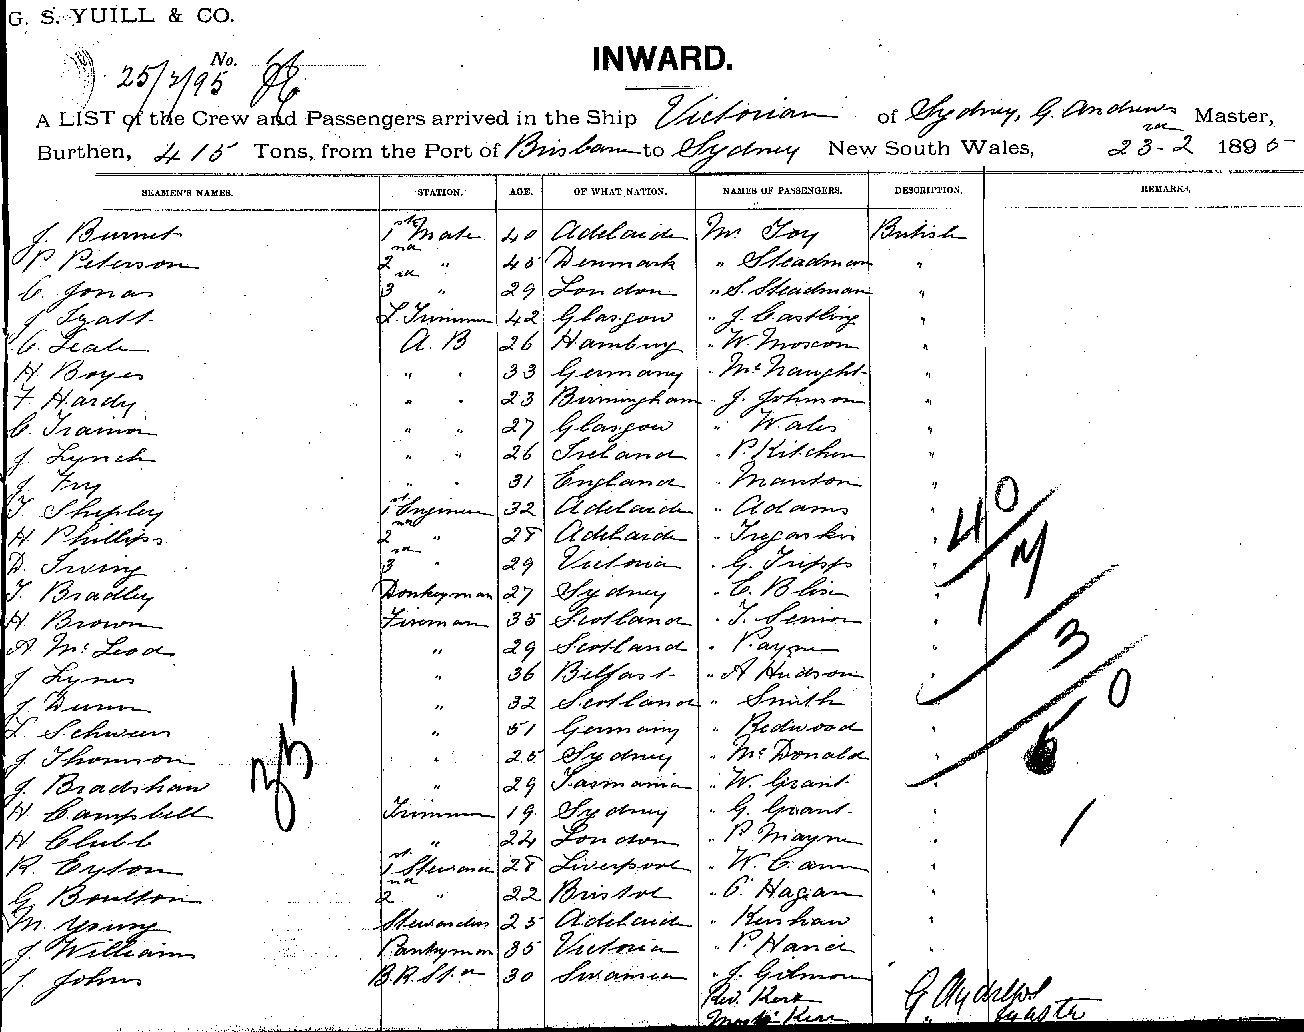 G. S. YUILL & CO.
No.
INWARD.
25/2/95
A LIST of the Crew and Passengers arrived in the Ship Victorian of Sydney, G. Andrews Master,
Burthen, 415 Tons, from the Port of Brisbane to Sydney New South Wales, 23-2 1895
SEAMEN'S NAMES. STATION. AGE. OF WHAT NATION. NAMES OF PASSENGERS. DESCRIPTION. REMARKS.
J. Burnet 1st Mate 40 Adelaide Mr Foy British
P. Peterson 2nd " 45 Denmark " Steadman "
C. Jonas 3rd " 29 London " S. Steadman "
J. Lyatt L. Trimmer 42 Glasgow " J. Castling "
C. Leale A. B 26 Hamburg " W. Moscow "
H. Boyes " " 33 Germany " McNaught "
F. Hardy " " 23 Birmingham " J. Johnson "
C. Trainor " " 27 Glasgow " Wales "
J. Lynch " " 26 Ireland " P. Kitchen "
J. Fry " " 31 England " Manton "
T. Shipley 1st Engineer 32 Adelaide " Adams "
H. Phillips 2nd " 28 Adelaide " Tregaskis "
D. Irving 3rd " 29 Victoria " G. Tripps "
T. Bradley Donkeyman 27 Sydney " C. Bliss "
H. Brown Fireman 35 Scotland " T. Senior "
A McLeod " 29 Scotland " Payne "
J. Lynes " 36 Belfast " A Hudson "
J. Dunn " 32 Scotland " Smith "
L. Schween " 51 Germany " Redwood "
J. Thomson " 25 Sydney " McDonald "
J. Bradshaw " 29 Tasmania " W. Grant "
H Campbell Trimmer 19 Sydney " G. Grant "
H Clubb " 24 London " P. Mayne "
R. Eyton 1st Steward 28 Liverpool " W. Cann "
G Boulton 2nd " 22 Bristol " C. Hagan "
M. Young Stewardess 25 Adelaide " Kershaw "
J. William Pantryman 35 Victoria " P. Hand "
J. Johns B.R. Std 30 Swansea " J. Gilmore
Rev. Kerr G Andrews
Mast. Kerr Master
40
17
3
60
1